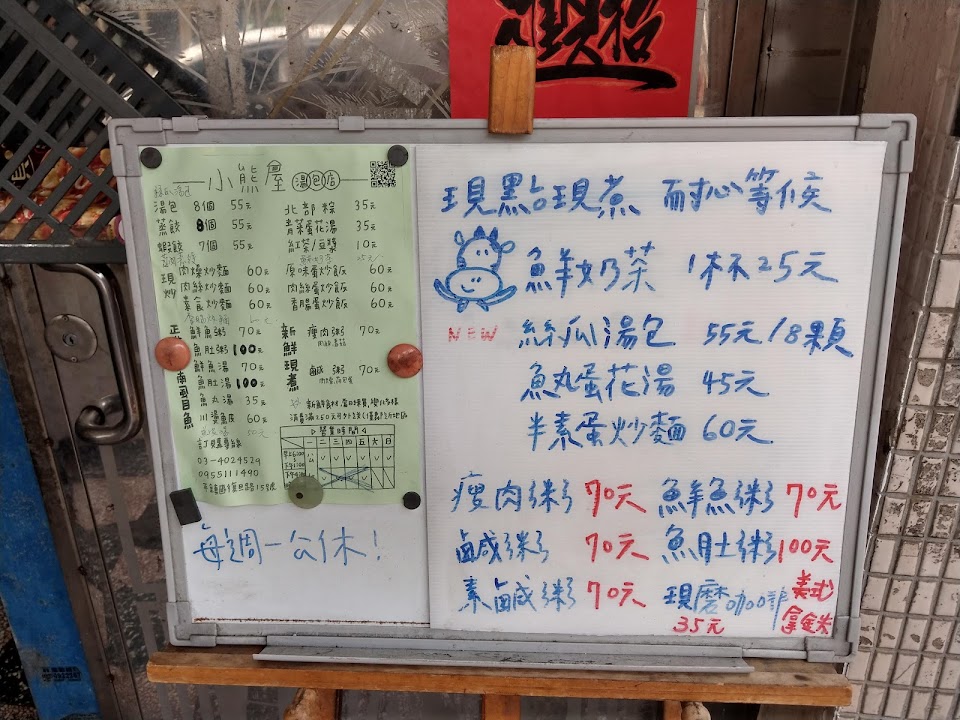 小熊屋 湯包店
湯包 8個 55元
蒸餃 8個 55元
蝦餃 7個 55元
現炒
肉燥炒麵 60元
肉絲炒麵 60元
素食炒麵 60元
鮮魚粥 70元
魚肚粥 100元
鮮魚湯 70元
魚肚湯 100元
魚丸湯 35元
川燙魚皮 60元
訂貝專線
03-4024529
0955111490
北部粽 35元
青菜蛋花湯 35元
紅茶/豆漿 10元
原味蛋炒飯 60元
肉絲蛋炒飯 60元
香腸蛋炒飯 60元
新鮮現煮
瘦肉粥 70元
鹹粥 70元
營業時間
一 二 三 四 五 六 日
每週一公休!
現點現煮 耐心等候
鮮奶茶 1杯25元
NEW 絲瓜湯包 55元/8顆
魚丸蛋花湯 45元
半素蛋炒麵 60元
瘦肉粥 70元 鮮魚粥 70元
鹹粥 70元 魚肚粥 100元
素鹹粥 70元 現磨咖啡 美式
35元 拿鐵